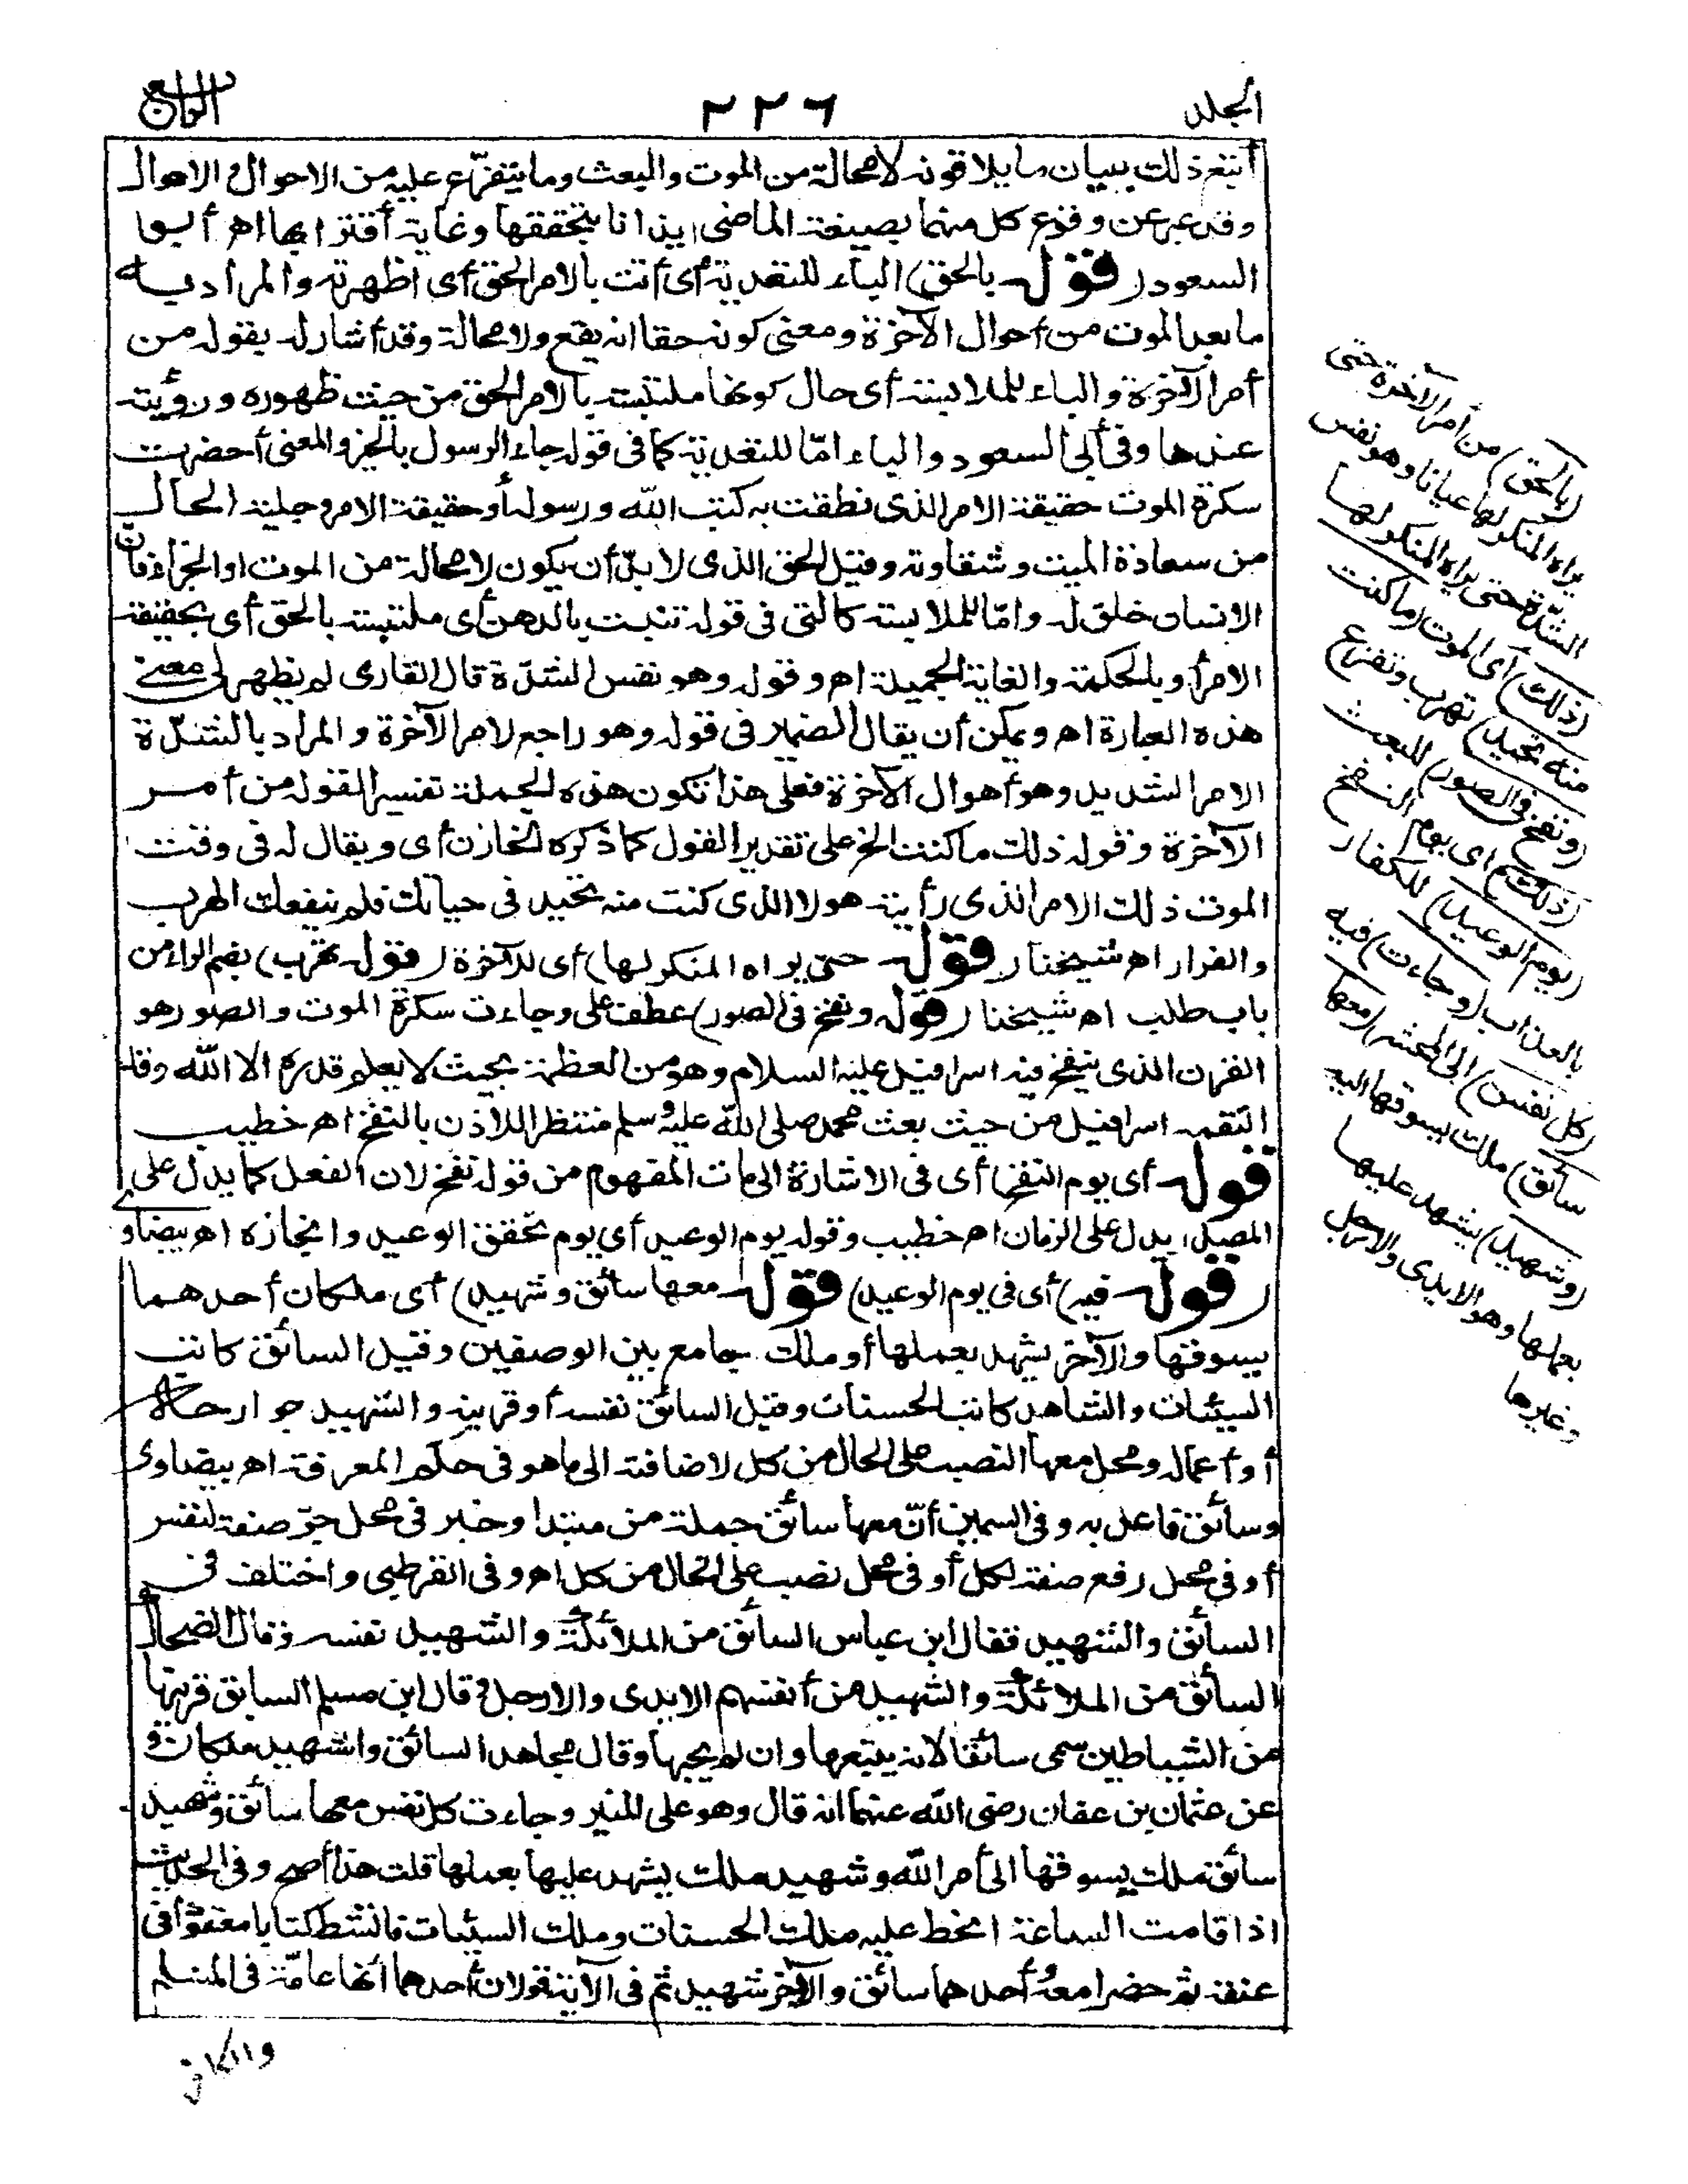 الجلد ٢٢٦ الرابع
أتبع ذلك ببيان ما يلاقونه لا محالة من الموت والبعث وما يتفرّع عليه من الاحوال والاهوال
وقد عبر عن وقوع كل منهما بصيغة الماضى ايذانا بتحققها وغاية أقترابها اه أبوا
السعود (قوله بالحق) الباء للتعدية أى أتت بالامر الحق أى اظهرته والمراد به
ما بعد الموت من أحوال الآخرة ومعنى كونه حقا انه يقع ولا محالة وقد أشار له بقوله من
أمر الآخرة والباء للملابسة أى حال كونها ملتبسة بالامر الحق من حيث ظهوره ورؤيته
عندها وفى أبى السعود والباء امّا للتعدية كما فى قوله جاء الرسول بالخبر والمعنى أحضرت
سكرة الموت حقيقة الامر الذى نطقت به كتب الله ورسوله أو حقيقة الامر وجلية الحال
من سعادة الميت وشقاوته وقيل الحق الذى لا بدّ أن يكون لا محالة من الموت او الجزاء فانّ
الانسان خلق له وامّا للملابسة كالتى فى قوله تنبت بالدهن أى ملتبسة بالحق أى بحقيقة
الامر أو بالحكمة والغاية الجميلة اه وقوله وهو نفس الشدّة قال القارى لم يظهر لى معنى
هذه العبارة اه ويمكن أن يقال الضمير فى قوله وهو راجع لامر الآخرة والمراد بالشدّة
الامر الشديد وهو أهوال الآخرة فعلى هذا تكون هذه الجملة تفسير القوله من أمر
الآخرة وقوله ذلك ما كنت الخ على تقدير القول كما ذكره الخازن أى ويقال له فى وقت
الموت ذلك الامر الذى رأيته هو لا الذى كنت منه تحيد فى حياتك فلم ينفعك الهرب
والفرار اه شيخنا (قوله حتى يراه المنكر لها) أى للآخرة (قوله تهرب) بضم الراء من
باب طلب اه شيخنا (قوله ونفخ فى الصور) عطف على وجاءت سكرة الموت والصور هو
القرن الذى ينفخ فيه اسرافيل عليه السلام وهو من العظمة بحيث لا يعلم قدره الا الله وقد
التقمه اسرافيل من حيث بعث محمد صلى الله عليه وسلم منتظرا للاذن بالنفخ اه خطيب
قوله أى يوم النفخ) أى فى الاشارة الى مات المفهوم من قوله نفخ لان الفعل كما يدل على
المصدر يدل على الزمان اه خطيب وقوله يوم الوعيد أى يوم تحقق الوعيد وانجازه اه بيضاو
(قوله فيه) أى فى يوم الوعيد) قوله معها سائق وشهيد) أى ملكان أحدهما
يسوقها والآخر يشهد بعملها أو ملك جامع بين الوصفين وقيل السائق كاتب
السيئات والشاهد كاتب الحسنات وقيل السائق نفسه أو قرينه والشهيد جوارحه
أو أعماله ومحل معها النصب على الحال من كل لاضافته الى ما هو فى حكم المعرفة اه بيضاوى
وسائق فاعل به وفى السمين أنّ معها سائق جملة من مبتدا وخبر فى محل جرّ صفة لنفس
أو فى محل رفع صفة لكل أو فى محل نصب على الحال من كل اه وفى القرطبى واختلف فى
السائق والشهيد فقال ابن عباس السائق من الملائكة والشهيد نفسه وقال الضحاك
السائق من الملائكة والشهيد من أنفسهم الايدى والارجل وقال ابن مسلم السابق قرينها
من الشياطين سمى سائقا لانه يتبعها وان لم يحبها وقال مجاهد السائق والشهيد ملكان و
عن عثمان بن عفان رضى الله عنهما انه قال وهو على المنبر وجاءت كل نفس معها سائق وشهيد
سائق ملك يسوقها الى أمر الله وشهيد ملك يشهد عليها بعملها قلت هذا أصح وفى الحديث
اذا قامت الساعة انحط عليه ملك الحسنات وملك السيئات فانشطا كتابا معقودا فى
عنقه ثم حضرا معه أحدهما سائق والآخر شهيد ثم فى الآية قولان أحدهما أنها عامّة فى المسلم
والكافر
(بالحق) من أمر الآخرة حتى
يراه المنكر لها عيانا وهو نفس
الشدّة حتى يراه المنكر لها
(ذلك) أى الموت (ما كنت
منه تحيد) تهرب وتفزع
(ونفخ فى الصور) للبعث
(ذلك) اى يوم النفخ
(يوم الوعيد) للكفار
بالعذاب (وجاءت) فيه
(كل نفس) الى المحشر (معها
سائق) ملك يسوقها اليه
(وشهيد) يشهد عليها
بعملها وهو الايدى والارجل
وغيرها